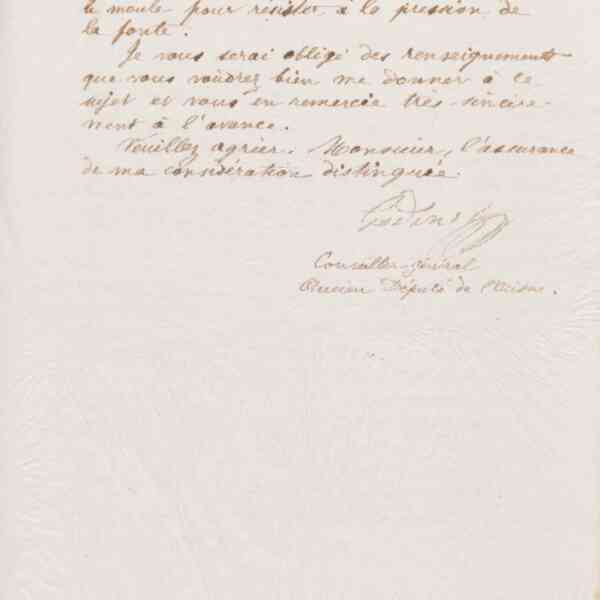 le moule pour résister à la pression de
la fonte.
Je vous serai obligé des renseignements
que vous voudrez bien me donner à ce
sujet et vous en remercie très sincère-
ment à l'avance.
Veuillez agréer, Monsieur, l'assurance
de ma considération distinguée.
Godin
Conseiller-général
Ancien Député de l'Aisne.